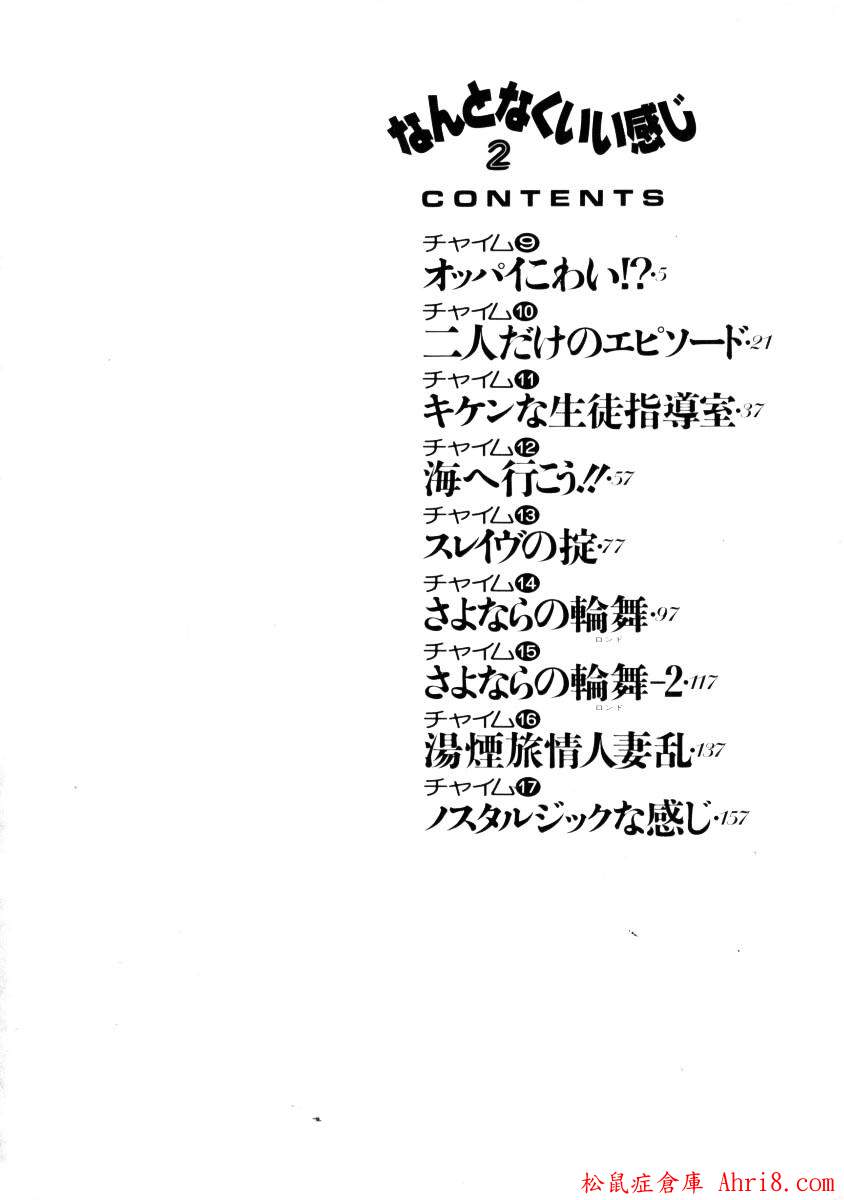 なんとなくいい感じ
2
CONTENTS
チャイム❾
オッパイこわい!?・5
チャイム❿
二人だけのエピソード・21
チャイム⓫
キケンな生徒指導室・37
チャイム⓬
海へ行こう!!・57
チャイム⓭
スレイヴの掟・77
チャイム⓮
さよならの輪舞・97
ロンド
チャイム⓯
さよならの輪舞-2・117
ロンド
チャイム⓰
湯煙旅情人妻乱・137
チャイム⓱
ノスタルジックな感じ・157
松鼠症倉庫 Ahri8.com